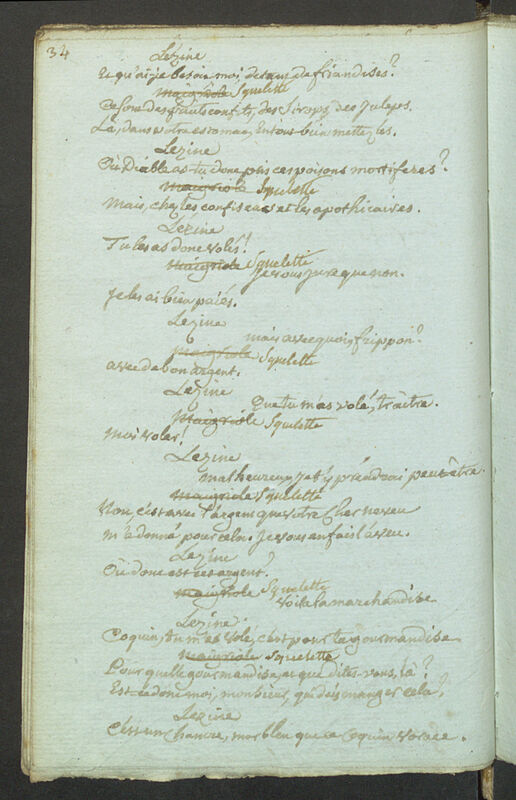 34
Lezine
Et qu'ai-je besoin moi, de tant de friandises?
Maigriole Squelette
Ce sont des fruits confits, des Sirops, des Juleps.
Là, dans votre estomac, Entous bien mettez les.
Lezine
Où Diable as-tu donc pris ces poisons mortiferes?
Maigriole Squelette
Mais, chez les confiseurs et les apothicaires.
Lézine
Tu les as donc volés!
Maigriole Squelette
Je vous jure que non.
Je les ai bien païés.
Lezine
mais avec quoi, frippon?
Maigriole Squelette
avec de bon argent.
Lezine
Que tu m'as volé, traitre.
Maigriole Squelette
Moi voler!
Lezine
malheureux, Je t'y prends ici peut-être.
Maigriole Squelette
Non, c'est avec l'argent que votre Cher neveu
m'à donné pour cela. Je vous en fais l'aveu.
Lezine
Où donc est cet argent?
Maigriole Squelette
Voila la marchandise
Lezine
Coquin, tu m'as volé, c'est pour ta gourmandise
Maigriole Squelette
Pour quelle gourmandise, ai que dites-vous, là?
Est-ce donc moi, monsieur, qui dois manger cela?
Lezine
C'est un chancre, morbleu que ce Coquin vorace.